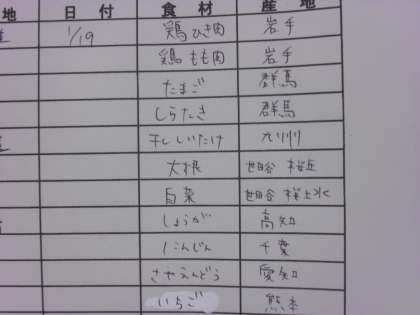 地 日付 食材 産地
1/19 鶏ひき肉 岩手
鶏もも肉 岩手
たまご 群馬
しらたき 群馬
干しいたけ 九州
大根 世田谷 桜丘
白菜 世田谷 桜上水
しょうが 高知
にんじん 千葉
さやえんどう 愛知
いちご 熊本